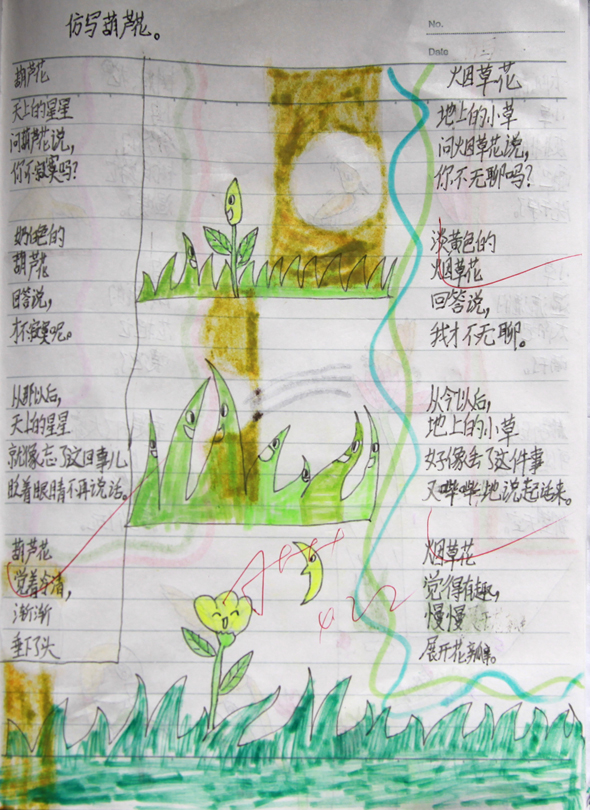 仿写葫芦花。
No.
Date
葫芦花
天上的星星
问葫芦花说,
你不寂寞吗?
奶白色的
葫芦花
回答说,
才不寂寞呢。
从那以后,
天上的星星
就像忘了这回事儿
眨着眼睛不再说话。
葫芦花
觉着冷清,
渐渐
垂下了头
烟草花
地上的小草
问烟草花说,
你不无聊吗?
淡黄色的
烟草花
回答说,
我才不无聊。
从今以后,
地上的小草
好像丢了这件事
又哗哗地说起话来。
烟草花
觉得有趣,
慢慢
展开花瓣。
A+++
4.22